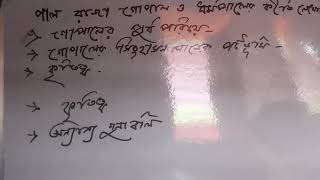 পাল রাজা গোপাল ও ধর্মপালের কৃতিত্ব লেখো
→ গোপালের পূর্ব পরিচয়
→ গোপালের সিংহাসন লাভের পটভূমি -
→ কৃতিত্ব
→ কৃতিত্ব
→ অন্যান্য গুনাবলি